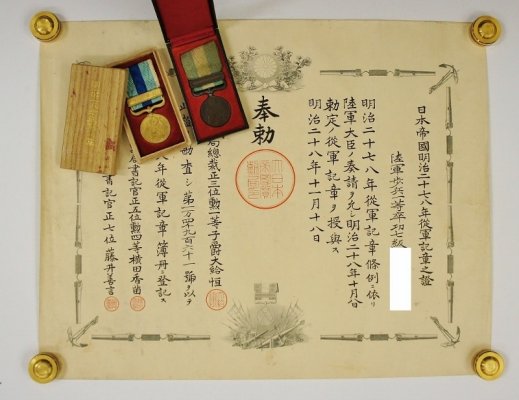 日本帝國明治二十七八年從軍記章之證
陸軍歩兵一等卒功七級
明治二十七八年從軍記章條例ニ依リ
陸軍大臣ノ奏請ヲ允シ明治二十八年十月九日
勅定ノ從軍記章ヲ授與ス
明治二十八年十一月十八日
奉勅
局總裁正三位勲一等子爵大給恒
此證
勘査シ第一万四千九百六十一號ヲ以テ
八年從軍記章簿册ニ登記ス
書記官正五位勲四等横田香苗
書記官正七位藤井善言